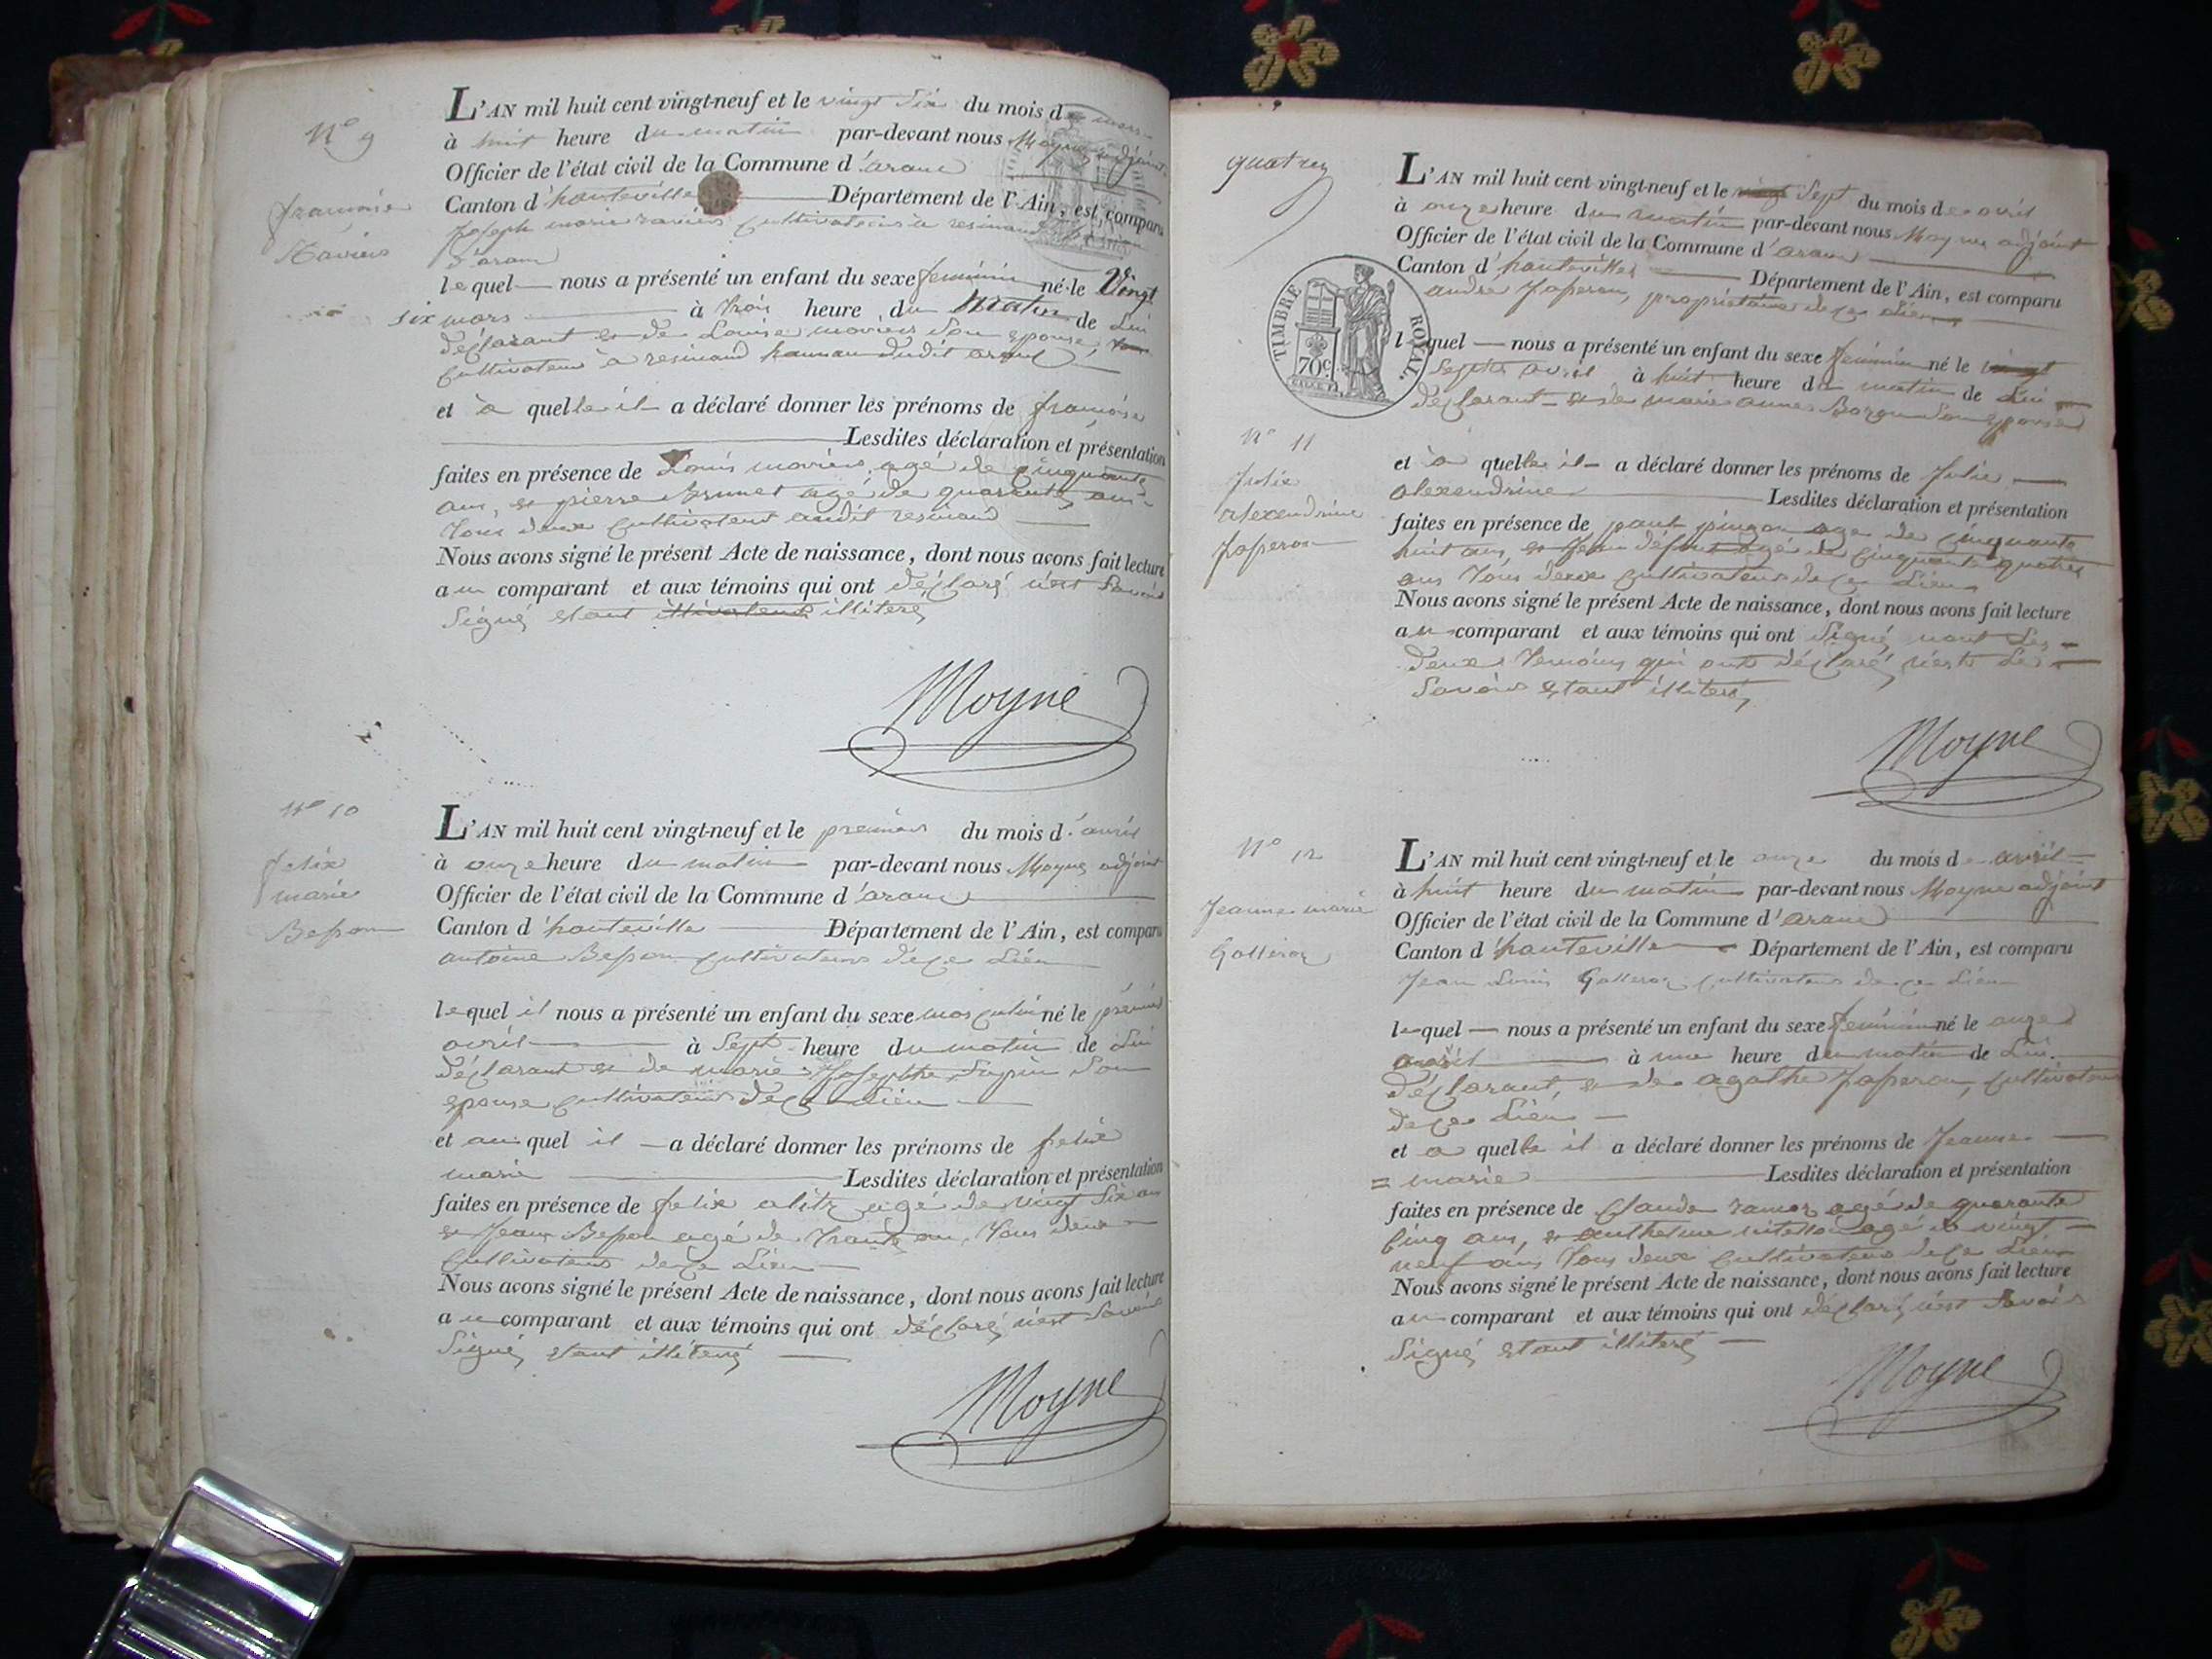 N° 9
françoise
L'AN mil huit cent vingt-neuf et le vingt six du mois de mars
à huit heure du matin par-devant nous Moyne adjoint
Officier de l'état civil de la Commune d'aranc
Canton d'hauteville Département de l'Ain, est comparu
joseph marie cultivateur à resinand
d'aranc
lequel nous a présenté un enfant du sexe feminin né le Vingt
six mars à trois heure du Matin de Lui
déclarant et de Louise son epouse,
cultivateur a resinand hameau dudit aranc
et à quelle il a déclaré donner les prénoms de françoise
Lesdites déclaration et présentation
faites en présence de Louis agé de cinquante
ans, et pierre Brunet agé de quarante ans
tous deux cultivateur audit resinand
Nous avons signé le présent Acte de naissance, dont nous avons fait lecture
au comparant et aux témoins qui ont déclaré
Signé etant illiteré
Moyne
N° 10
felix
marie
Besson
L'AN mil huit cent vingt-neuf et le premier du mois d'avril
à onze heure du matin par-devant nous Moyne adjoint
Officier de l'état civil de la Commune d'aranc
Canton d'hauteville Département de l'Ain, est comparu
antoine Besson cultivateur de ce Lieu
lequel il nous a présenté un enfant du sexe masculin né le premier
avril à Sept heure du matin de Lui
déclarant et de marie Josephte Son
epouse cultivateur de ce Lieu
et au quel il a déclaré donner les prénoms de felix
marie Lesdites déclaration et présentation
faites en présence de felix agé de vingt Six ans
et Jean Besson agé de trante ans, tous deux
cultivateur de ce Lieu
Nous avons signé le présent Acte de naissance, dont nous avons fait lecture
au comparant et aux témoins qui ont déclaré
Signé etant illiteré
Moyne
TIMBRE ROYAL
70c
N° 11
Julie
alexendrine
Josseron
L'AN mil huit cent vingt-neuf et le vingt Sept du mois de avril
à onze heure du matin par-devant nous Moyne adjoint
Officier de l'état civil de la Commune d'aranc
Canton d'hauteville Département de l'Ain, est comparu
andré Josseron, propriétaire de ce Lieu
lequel nous a présenté un enfant du sexe feminin né le vingt
Sept avril à huit heure du matin de Lui
déclarant et de marie anne Son epouse
et à quelle il a déclaré donner les prénoms de Julie
alexendrine Lesdites déclaration et présentation
faites en présence de paul pingon age de cinquante
huit ans, et Jean agé de cinquante quatre
ans tous deux cultivateur de ce Lieu
Nous avons signé le présent Acte de naissance, dont nous avons fait lecture
au comparant et aux témoins qui ont Signé, Les
deux temoins qui ont déclaré
Savoir etant illiteré,
Moyne
N° 12
Jeanne marie
L'AN mil huit cent vingt-neuf et le onze du mois de avril
à huit heure du matin par-devant nous Moyne adjoint
Officier de l'état civil de la Commune d'aranc
Canton d'hauteville Département de l'Ain, est comparu
Jean Louis cultivateur de ce Lieu
lequel nous a présenté un enfant du sexe feminin né le onze
avril à une heure du matin de Lui
déclarant, et de agathe Josseron, cultivateur
de ce Lieu
et à quelle il a déclaré donner les prénoms de Jeanne
= marie Lesdites déclaration et présentation
faites en présence de Claude agé de quarante
cinq ans, et agé de vingt
neuf ans tous deux cultivateur de ce Lieu
Nous avons signé le présent Acte de naissance, dont nous avons fait lecture
au comparant et aux témoins qui ont déclaré Savoir
Signé etant illiteré
Moyne